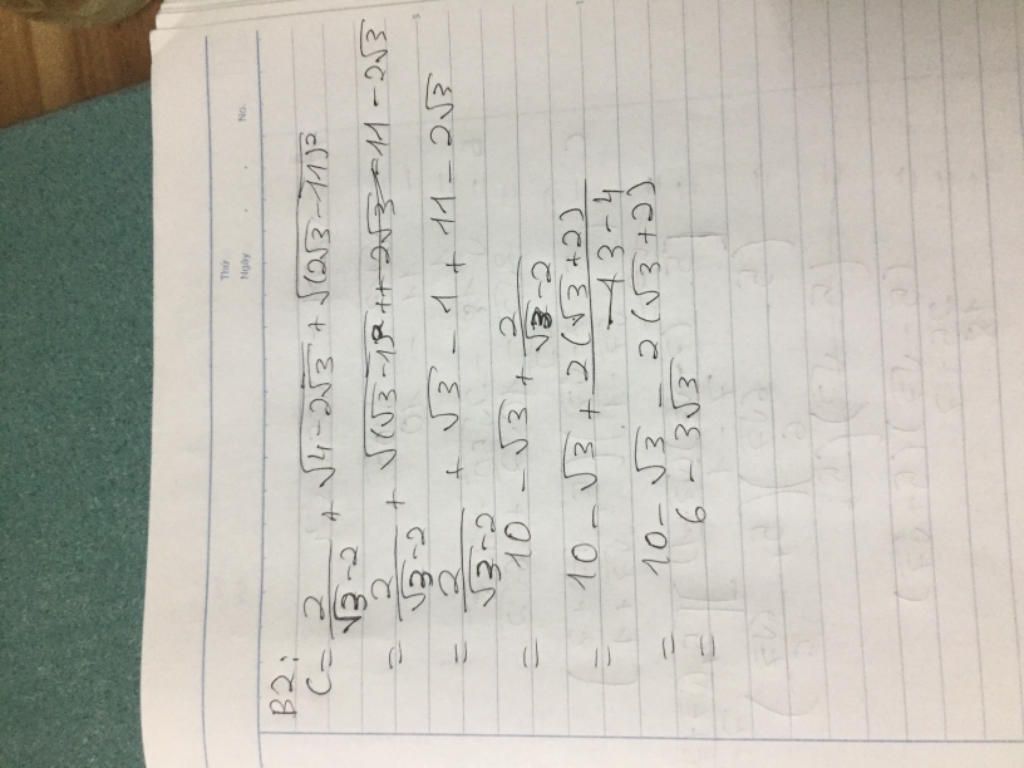 Thứ
Ngày . . No.
B2:
C = 2/(√3-2) + √(4-2√3) + √((2√3-11)²)
= 2/(√3-2) + √((√3-1)²) + 11-2√3
= 2/(√3-2) + √3 - 1 + 11 - 2√3
= 10 - √3 + 2/(√3-2)
= 10 - √3 + 2(√3+2)/(3-4)
= 10 - √3 - 2(√3+2)
= 6 - 3√3